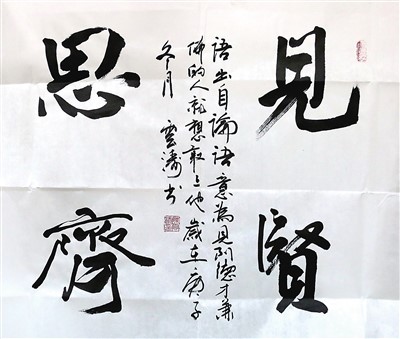 見賢
語出自論語意為見到德才兼
備的人就想趕上他歲在庚子
冬月 雲濤书
思齊